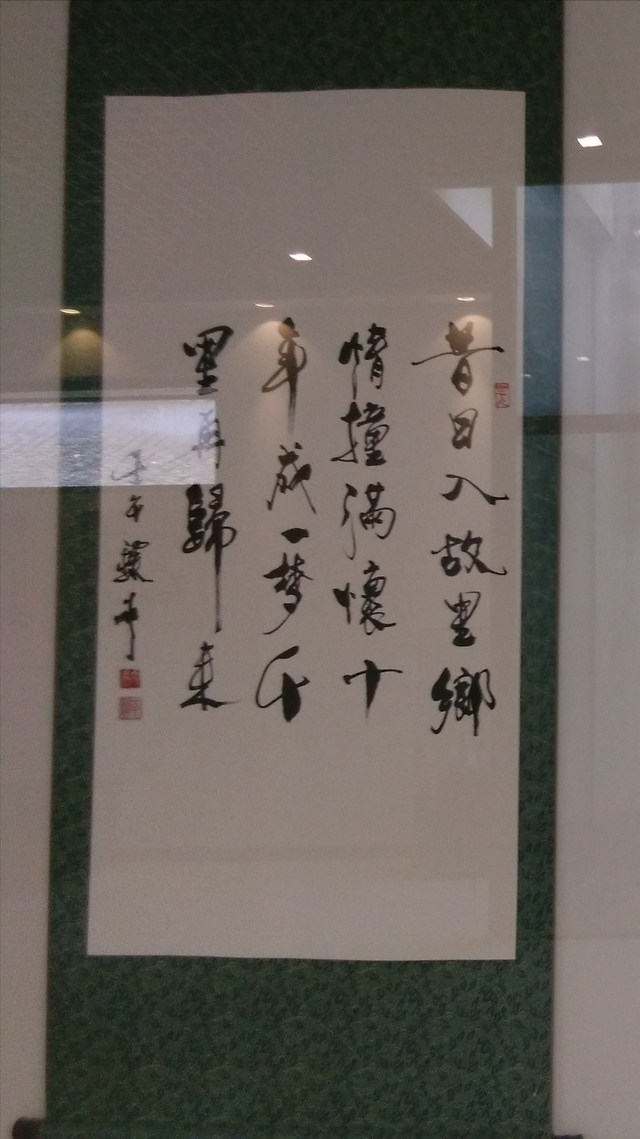 昔日入故里鄉
情撞滿懷十
年成一梦千
里再歸來